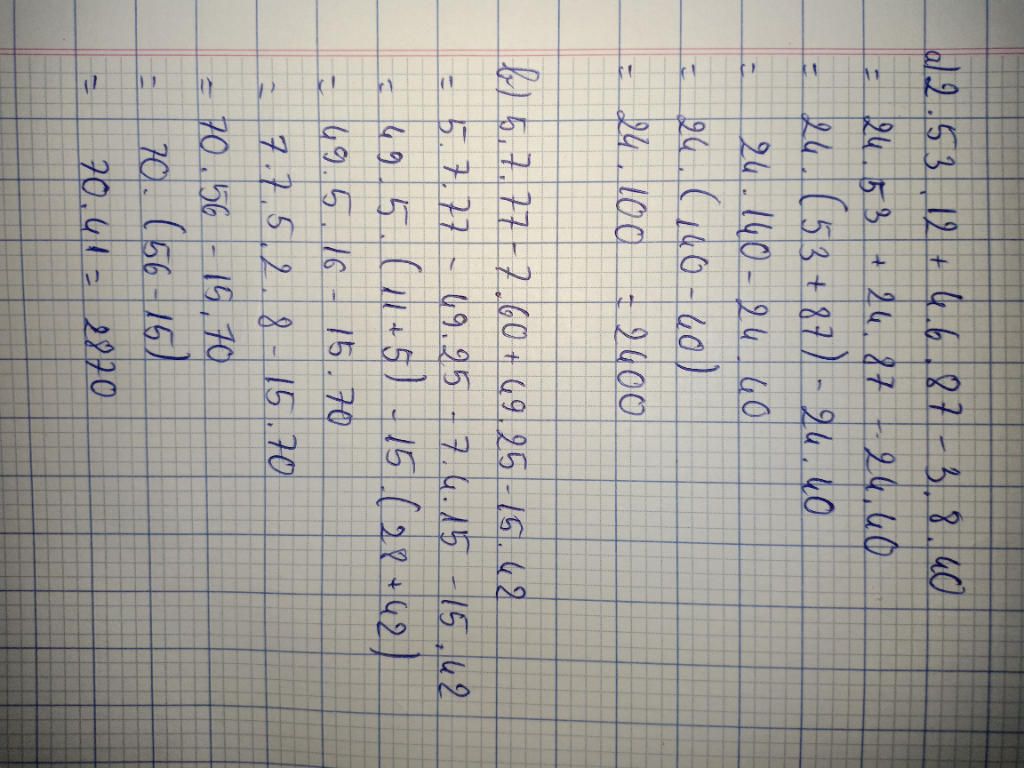 a) 2.53.12 + 4.6.87 - 3.8.40
= 24.53 + 24.87 - 24.40
= 24.(53 + 87) - 24.40
= 24.140 - 24.40
= 24.(140 - 40)
= 24.100 = 2400
b) 5.7.77 - 7.60 + 49.25 - 15.42
= 5.7.77 - 49.25 - 7.4.15 - 15.42
= 49.5.(11 + 5) - 15.(28 + 42)
= 49.5.16 - 15.70
= 7.7.5.2.8 - 15.70
= 70.56 - 15.70
= 70.(56 - 15)
= 70.41 = 2870